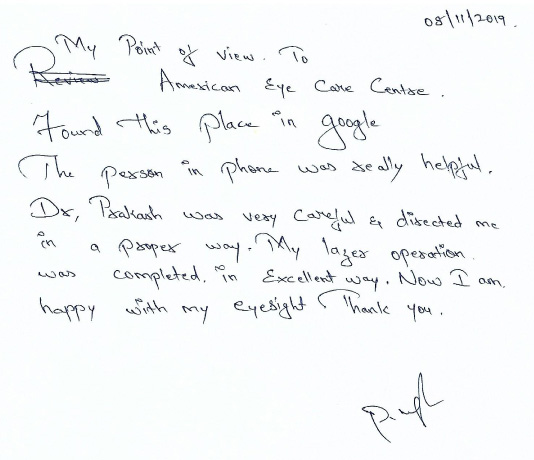 08/11/2019.
My Point of view. To
Review American Eye Care Centre.
Found this Place in google
The person in phone was really helpful.
Dr, Prakash was very careful & directed me
in a proper way. My lazer operation
was completed. in Excellent way. Now I am.
happy with my eyesight Thank you.